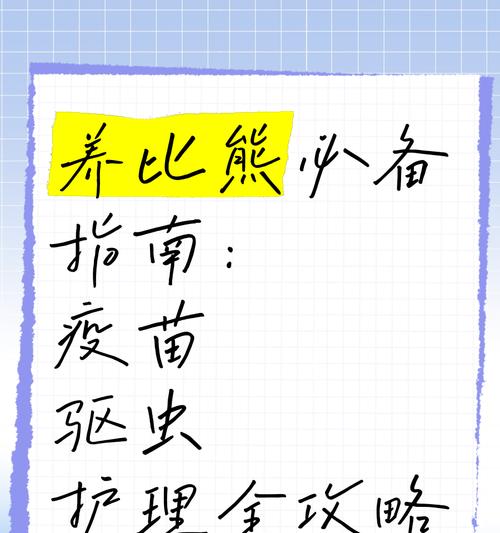 养比熊必备
指南：
疫苗
驱虫
护理全攻略